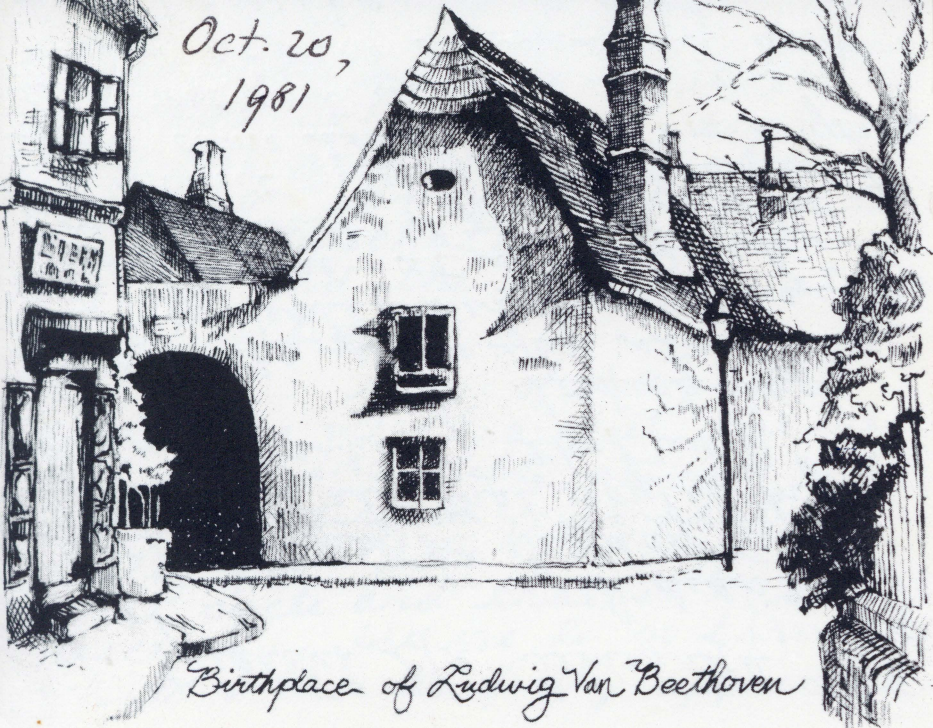 Oct. 20,
1981
Birthplace of Ludwig Van Beethoven